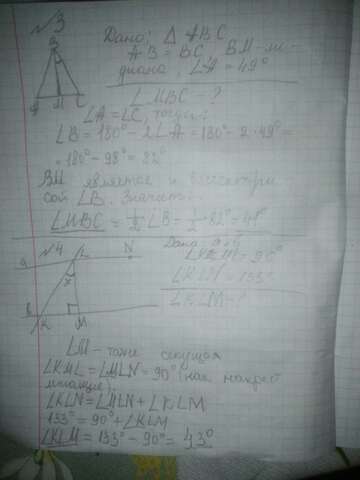 №3
Дано: Δ ABC
AB = BC, BM - ме-
диана, ∠A = 49°
∠MBC - ?
B
A M C
∠A = ∠C, тогда:
∠B = 180° - 2∠A = 180° - 2·49° =
= 180° - 98° = 82°
BM является и биссектри
сой ∠B. Значит
∠MBC = 1/2 ∠B = 1/2 · 82° = 41°
№4
Дано: a||b
∠KML = 90°
∠KLN = 133°
∠KLM - ?
a L N
x
b K M
LM - тоже секущая
∠KML = ∠MLN = 90° (как накрест
лежащие).
∠KLN = ∠MLN + ∠KLM
133° = 90° + ∠KLM
∠KLM = 133° - 90° = 43°